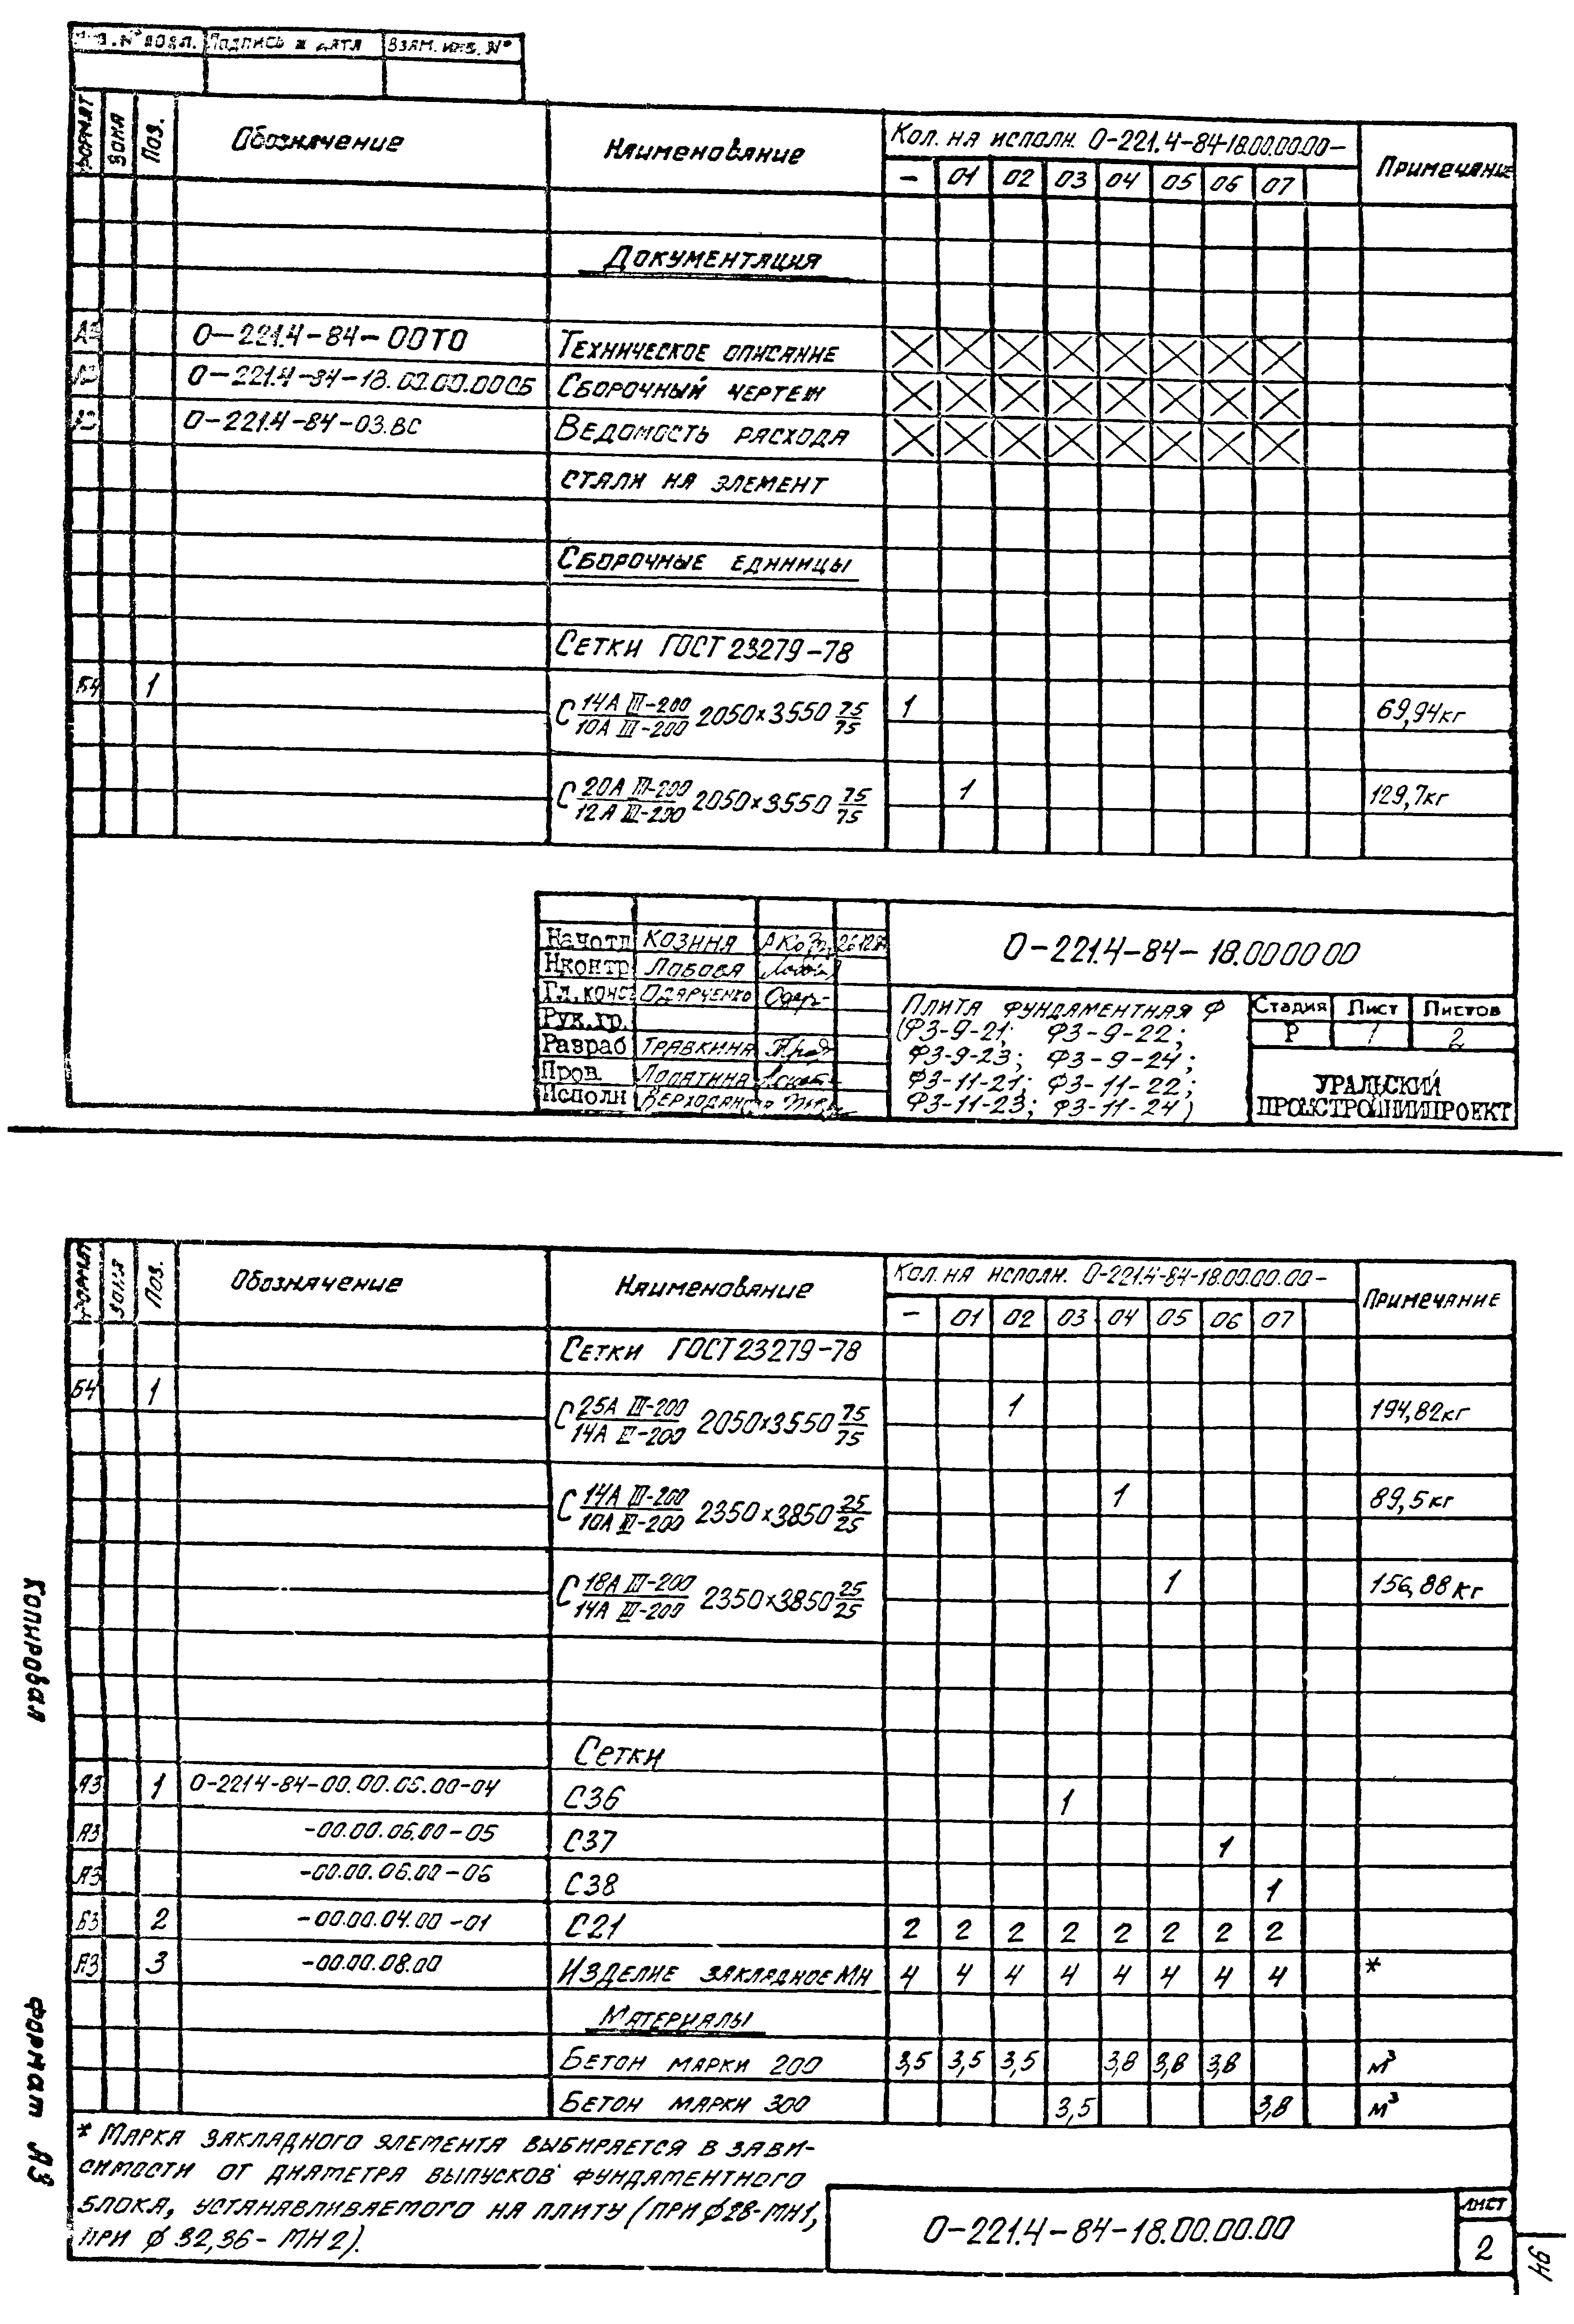 Инв. № подл. Подпись и дата Взам. инв. №
Формат Зона Поз. Обозначение Наименование Кол. на исполн. 0-221.4-84-18.00.00.00- Примечание
- 01 02 03 04 05 06 07
Документация
0-221.4-84-00ТО Техническое описание
А3 0-221.4-84-18.00.00.00СБ Сборочный чертеж
А3 0-221.4-84-03.ВС Ведомость расхода
стали на элемент
Сборочные единицы
Сетки ГОСТ 23279-78
Б4 1 С 14А III-200/10А III-200 2050×3550 75/75 1 69,94кг
С 20А III-200/12А III-200 2050×3550 75/75 1 129,7кг
Начотд Козина 26.12.84
Нконтр Лобова
Гл.конс Одярченко
Рук.гр.
Разраб Травкина
Пров. Лопатина
Исполн
0-221.4-84-18.00.00.00
Плита фундаментная Ф
(Ф3-9-21; Ф3-9-22;
Ф3-9-23; Ф3-9-24;
Ф3-11-21; Ф3-11-22;
Ф3-11-23; Ф3-11-24)
Стадия Лист Листов
Р 1 2
УРАЛЬСКИЙ
ПРОМСТРОЙНИИПРОЕКТ
Формат Зона Поз. Обозначение Наименование Кол. на исполн. 0-221.4-84-18.00.00.00- Примечание
- 01 02 03 04 05 06 07
Сетки ГОСТ 23279-78
Б4 1 С 25А III-200/14А III-200 2050×3550 75/75 1 194,82кг
С 14А III-200/10А III-200 2350×3850 25/25 1 89,5кг
С 18А III-200/14А III-200 2350×3850 25/25 1 156,88кг
Сетки
А3 1 0-221.4-84-00.00.06.00-04 С36 1
А3 -00.00.06.00-05 С37 1
А3 -00.00.06.00-06 С38 1
Б3 2 -00.00.04.00-01 С21 2 2 2 2 2 2 2 2
А3 3 -00.00.08.00 Изделие закладное МН 4 4 4 4 4 4 4 4 *
Материалы
Бетон марки 200 3,5 3,5 3,5 3,8 3,8 3,8 м³
Бетон марки 300 3,5 3,8 м³
* Марка закладного элемента выбирается в зави-
симости от диаметра выпусков фундаментного
блока, устанавливаемого на плиту (при ф28-МН1,
при ф 32,36- МН2).
0-221.4-84-18.00.00.00
Лист
2
94
Копировал
формат А3